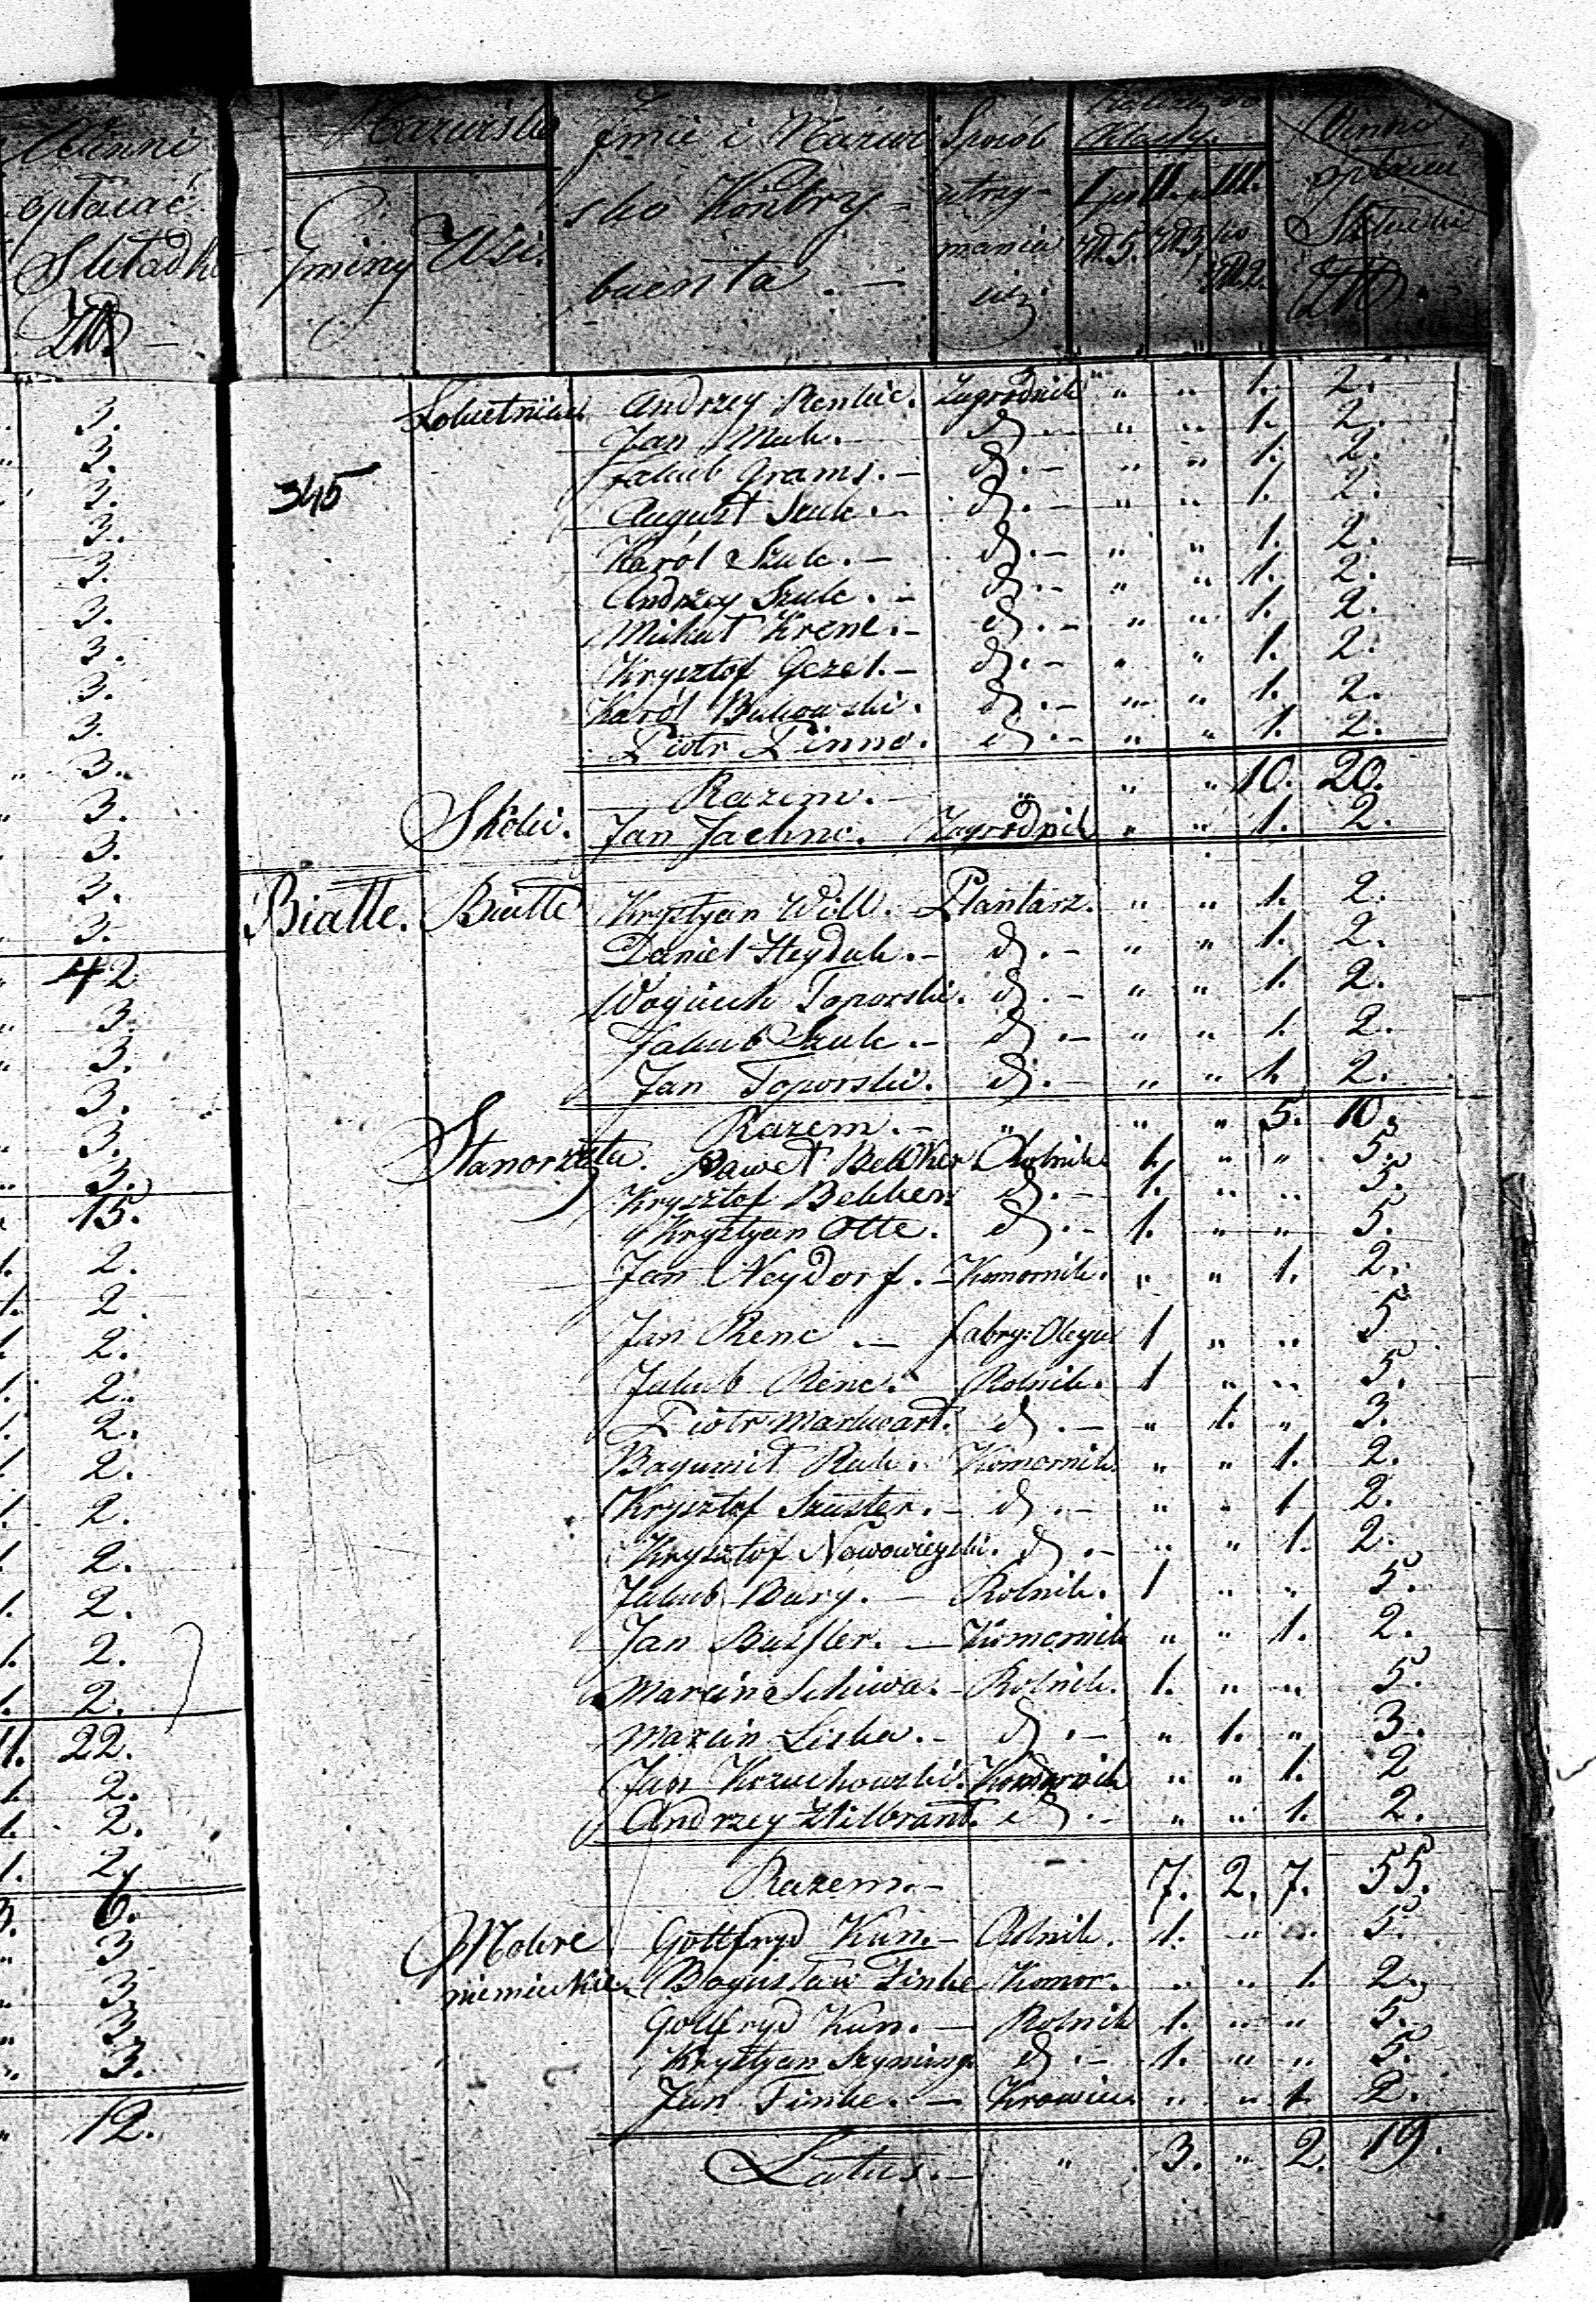 Winni
opłacać
Składki
Złł
3.
3.
3.
3.
3.
3.
3.
3.
3.
3.
3.
3.
3.
3.
42
3.
3.
3.
3.
3.
15.
1. 2.
1. 2.
1. 2.
1. 2.
1. 2.
1. 2.
1. 2.
1. 2.
1. 2.
1. 2.
1. 2.
11. 22.
1. 2.
1. 2.
1. 2.
3. 6.
3
3
3.
3.
12.
Nazwisko
Gminy Wsi.
Imie i Nazwi
sko Kontry-
buenta.
Sposób
utrzy-
mania
się
Klassy.
I po II po III.
Zł. 5. Zł. 3. po
Zł. 2.
Winni
opłacać
Składki
Złł.
345
Andrzey Renkie. Zagrodnik " " 1. 2.
Jan Muk. d. - " " 1. 2.
Jakub Grams. - d. - " " 1. 2.
August Szulc. - d. - " " 1. 2.
Karól Szulc. - d. - " " 1. 2.
Andrzey Szulc. - d. - " " 1. 2.
Michał Krenc. - d. - " " 1. 2.
Krysztof Gezel. - d. - " " 1. 2.
Karól Bukowski. d. - " " 1. 2.
Piotr Pinno. d. - " " 1. 2.
Razem. - " " " 10. 20.
Skóki. Jan Jachne. Zagrodnik " " 1. 2.
Białłe. Białłe Krystyan Will. - Plantarz. " " 1. 2.
Daniel Heyduk. - d. - " " 1. 2.
Woyciech Toporski. d. - " " 1. 2.
Jakub Szulc. - d. - " " 1. 2.
Jan Toporski. d. - " " 1. 2.
Razem. - " " " 5. 10.
Paweł Bekker Rolnik 1. " " 5.
Krysztof Bekker d. - 1. " " 5.
Krystyan Otte. d. - 1. " " 5.
Jan Neydorf. - Komornik. " " 1. 2.
Jan Renc - Fabry: Oleyu 1 " " 5
Jakub Renc. Rolnik. 1 " " 5.
Piotr Markwart. d. - " 1. " 3.
Bogumił Ruk. Komornik. " " 1. 2.
Krysztof Szuster. - d. - " " 1 2.
Krysztof Nowowieyski. d. - " " 1. 2.
Jakub Bury. - Rolnik. 1 " " 5.
Jan Bufler. - Komornik " " 1. 2.
Marcin Schiwa. - Rolnik. 1. " " 5.
Marcin Liska. - d. - " 1. " 3.
Jan Kozuchowski. Komornik " " 1. 2
Andrzey Hilbrant. d. - " " 1. 2.
Razem. - 7. 2. 7. 55.
Mokre Gottfryd Kun. - Rolnik. 1. " " 5.
niemieckie. Bogusław Finke Komor. " " 1. 2.
Gottfryd Kun. - Rolnik 1. " " 5.
Krystyan d. - 1. " " 5.
Jan Finke. - Krawiec " " 1. 2.
Latus. - " 3. " 2. 19.